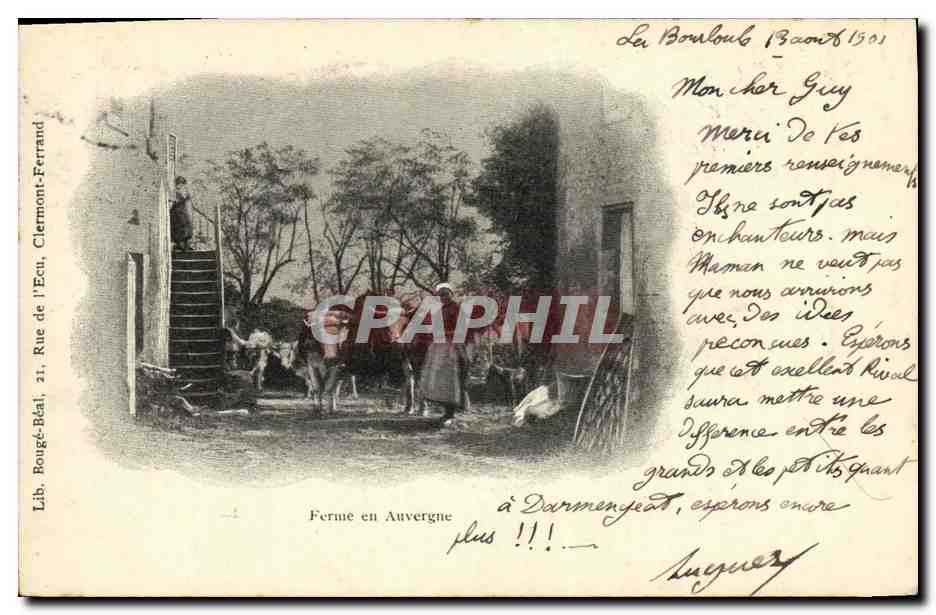 La Bourboule 13 aout 1901
Mon cher Guy
Merci de tes
premiers renseignements
Ils ne sont pas
enchanteurs. mais
Maman ne veut pas
que nous arrivions
avec des idées
preconçues. Espérons
que cet exellent Rival
saura mettre une
difference entre les
grands et les petits quant
à Darmengeat, espérons encore
plus !!!
Lib. Bougé-Béal, 21, Rue de l'Ecu, Clermont-Ferrand
CAPHIL
Ferme en Auvergne